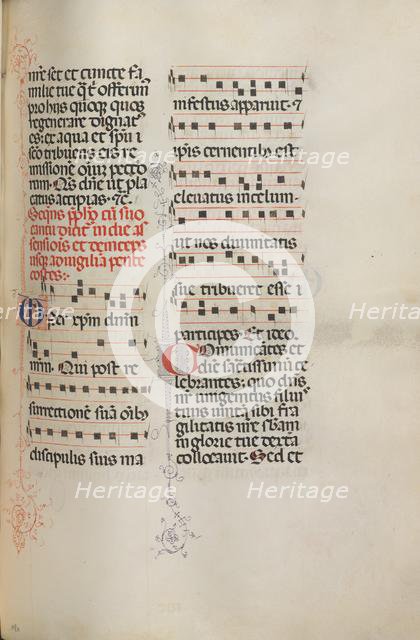 nr̃e set et cuncte fa
milie tue q̃s offerim̃
pro hijs quoq̃ quos
regenerare dignat̃
es: ex aqua et spũ
sc̃o tribuens eis re
missionẽ
accipias
Sequẽs
cantu dicit̃ in die as
sensionis et deinceps
usq̃ ad uigiliã pente
costes:-
Per xp̃m dñm
nr̃m. Qui post re
surrectionẽ suã oĩb9
discipulis suis ma
nifestus apparuit. ⁊
ipsis cernentib9 est
eleuatus in celum.
ut nos diuinitatis
sue tribueret esse
participes. Et ideo.
Comunicantes et
diẽ sacratissimũ ce
lebrantes: quo dñs
nr̃ unigenitus filius
tuus unitã sibi fra
gilitatis nr̃e sbãm
in glorie tue dextera
collocauit. Sed et
Heritage
Heritage
Heritage
Heritage
Heritage
Heritage
Heritage
Heritage